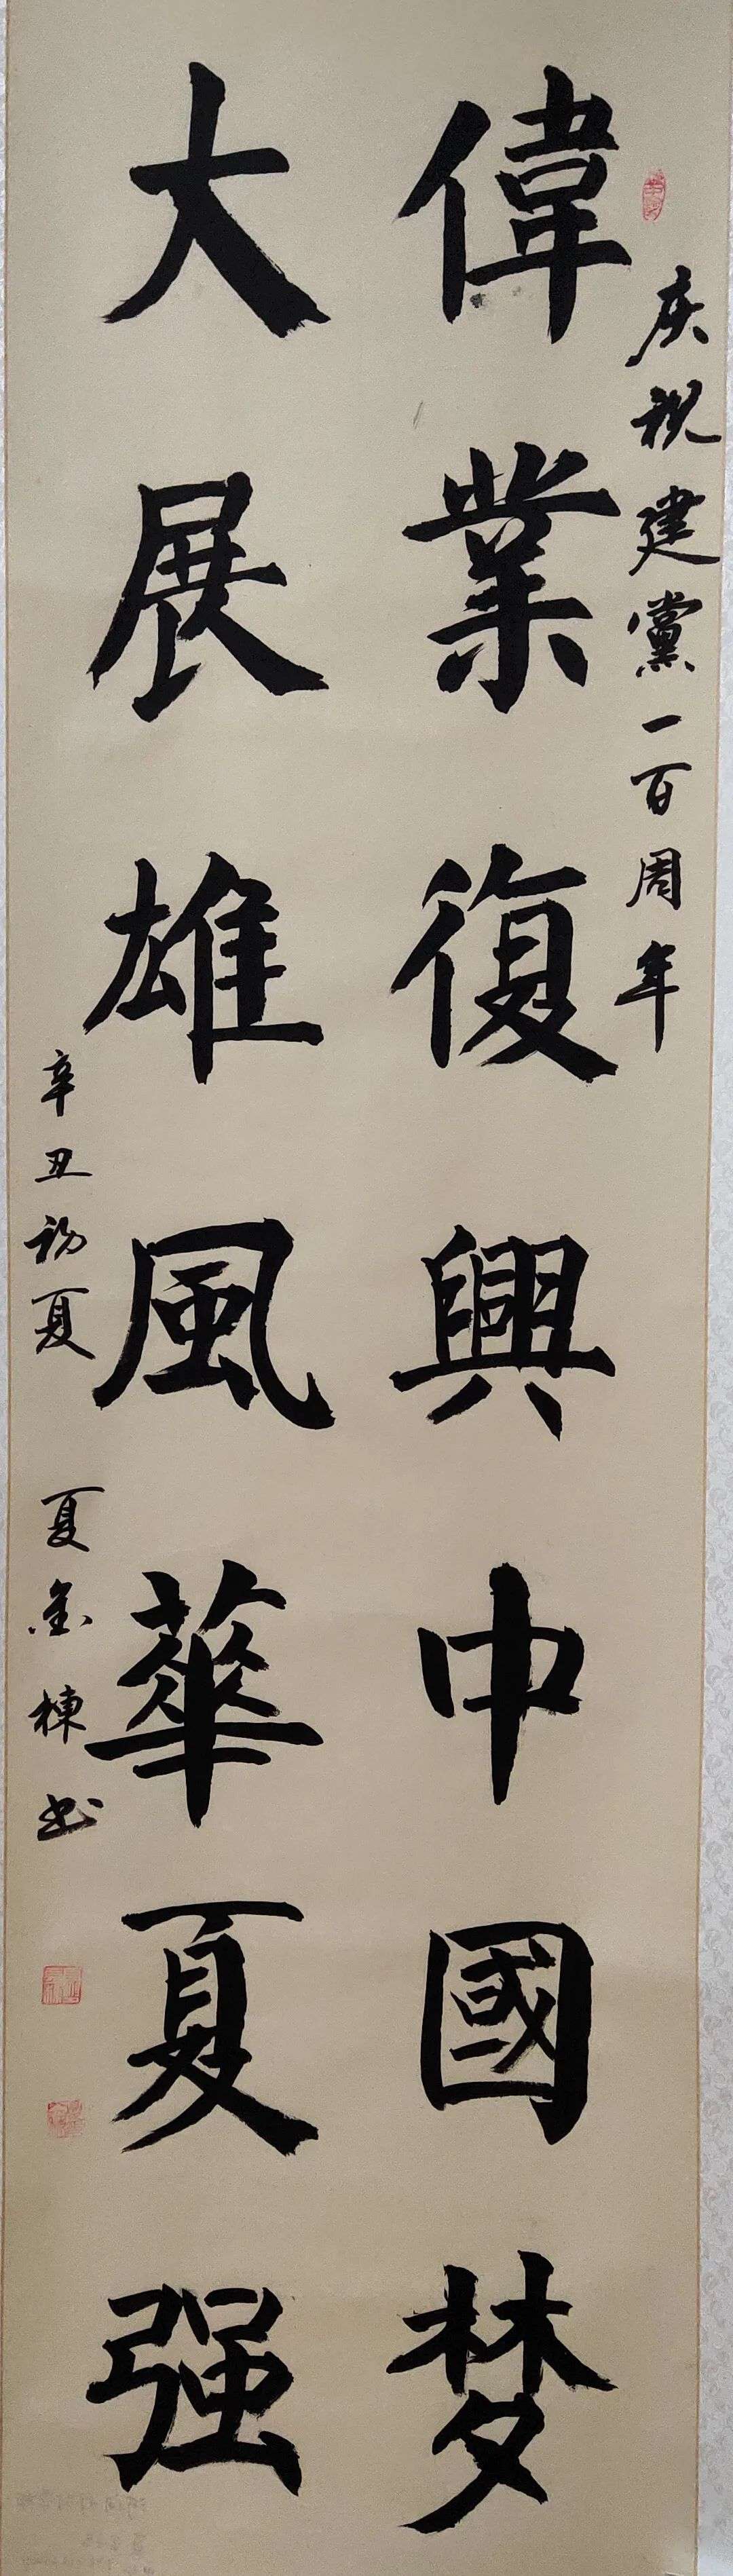 庆祝建黨一百周年
偉業復興中國梦
大展雄風華夏强
辛丑初夏 夏金棟书